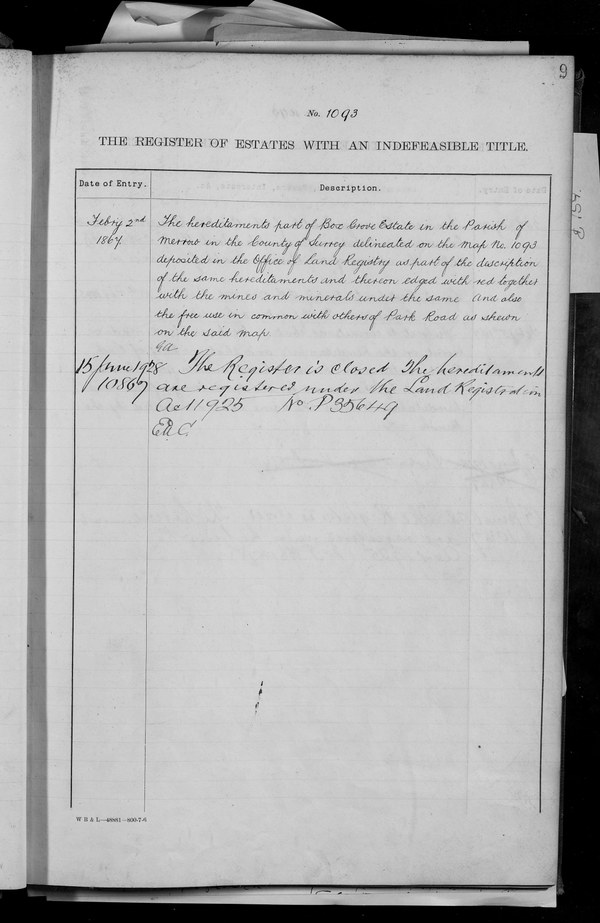 9
No. 1093
THE REGISTER OF ESTATES WITH AN INDEFEASIBLE TITLE.
Date of Entry.
Description.
Febry 2nd
1867
The hereditaments part of Box Grove Estate in the Parish of
Merrow in the County of Surrey delineated on the Map No. 1093
deposited in the Office of Land Registry as part of the description
of the same hereditaments and thereon edged with red together
with the mines and minerals under the same and also
the free use in common with others of Park Road as shewn
on the said map.
15 June 1928
10867
The Register is closed The hereditaments
are registered under the Land Registration
Act 1925 No. P35649
W B & L—46981—800-7-6